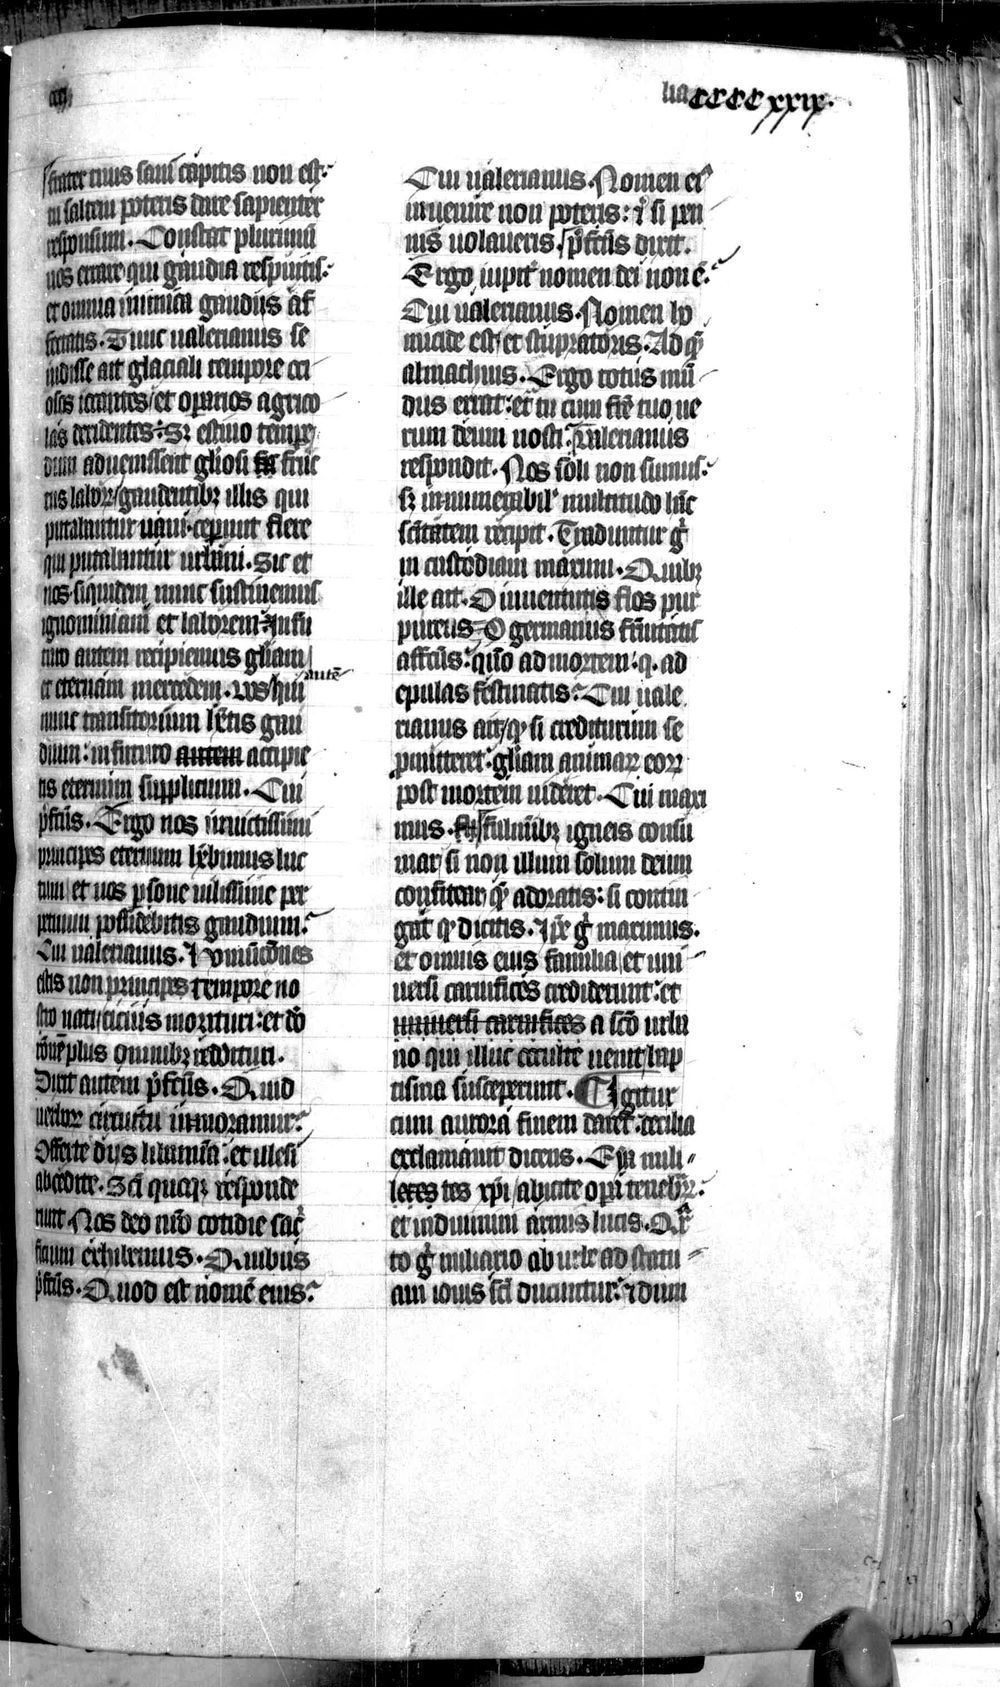 lia CCCC xxix.
frater tuus sani capitis non est.
tu saltem poteris dare sapienter
responsum. Constat plurimū
uos errare qui gaudia respuitis.
et omnia inimica gaudiis af
fectatis. Tunc ualerianus se
uidisse ait glaciali tempore oci
osos iocantes et operarios agrico
las deridentes. Sꝫ estiuo tempore
dum aduenissent gliosi fruc
tus laboꝝ gaudentibꝫ illis qui
putabantur uani ceperunt flere
qui putabantur urbani. Sic et
nos siquidem nunc sustinemus
ignominiam et laborem. In fu
turo autem recipiemus gliam
et eternam mercedem. Vos autē
nunc transitorium hētis gau
dium: in futuro autem accipie
tis eternum supplicium. Cui
p̄fctūs. Ergo nos inuictissimi
principes eternum hēbimus luc
tum et uos psone uilissime per
petuum possidebitis gaudium.
Cui ualerianus. Homūcōnes
estis non principes tempore no
stro nati cicius morituri: et dō
rōnē plus omnibꝫ reddituri.
Dixit autem p̄fctūs. Quid
uerboꝝ circuitu inmoramur.
Offerte diis libamīa: et illesi
abcedite. Sci quoqꝫ responde
runt. Nos deo uiuo cotidie sac
ficium exhibemus. Quibus
p̄fctūs. Quod est nomē eius.
Cui ualerianus. Nomen eiꝰ
inuenire non poteris: ⁊ si pen
nis uolaueris. p̄fctūs dixit.
Ergo iupit nomen dei non ē.
Cui ualerianus. Nomen ho
micide est et stupratoris. Ad qͫ
almachius. Ergo totus mū
dus errat: et tu cum frē tuo ue
rum deum nosti. Valerianus
respondit. Nos soli non sumus.
sꝫ innumerabil' multitudo hāc
scītatem recipit. Traduntur gͥ
in custodiam maximi. Quibꝫ
ille ait. O iuuentutis flos pur
pureus. O germanus frnitatis
affctūs. quō ad mortem: q. ad
epulas festinatis. Cui uale
rianus ait, qꝫ si crediturum se
promitteret. gliam animaꝝ eoꝝ
post mortem uideret. Cui maxi
mus. fulminibꝫ igneis consu
mar, si non illum solum deum
confitear qͫ adoratis: si contin
gat qꝫ dicitis. Ipē gͥ maximus.
et omnis eius familia et uni
uersi carnifices crediderunt: et
uniuersi carnifices a scō urba
no qui illuc occulte uenit bap
tisma susceperunt. Igitur
cum aurora finem daret. cecilia
exclamauit dicens. Eya mili
tes xp̄i abicite opa tenebrꝝ.
et induimini armis lucis. Qr
to gͥ miliario ab urbe ad statu
am iouis sci ducuntur. ⁊ dum